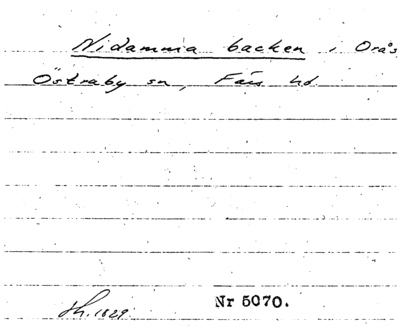 Nidamma backen i Orås
Östraby sn, Färs hd.
Nr 5070.